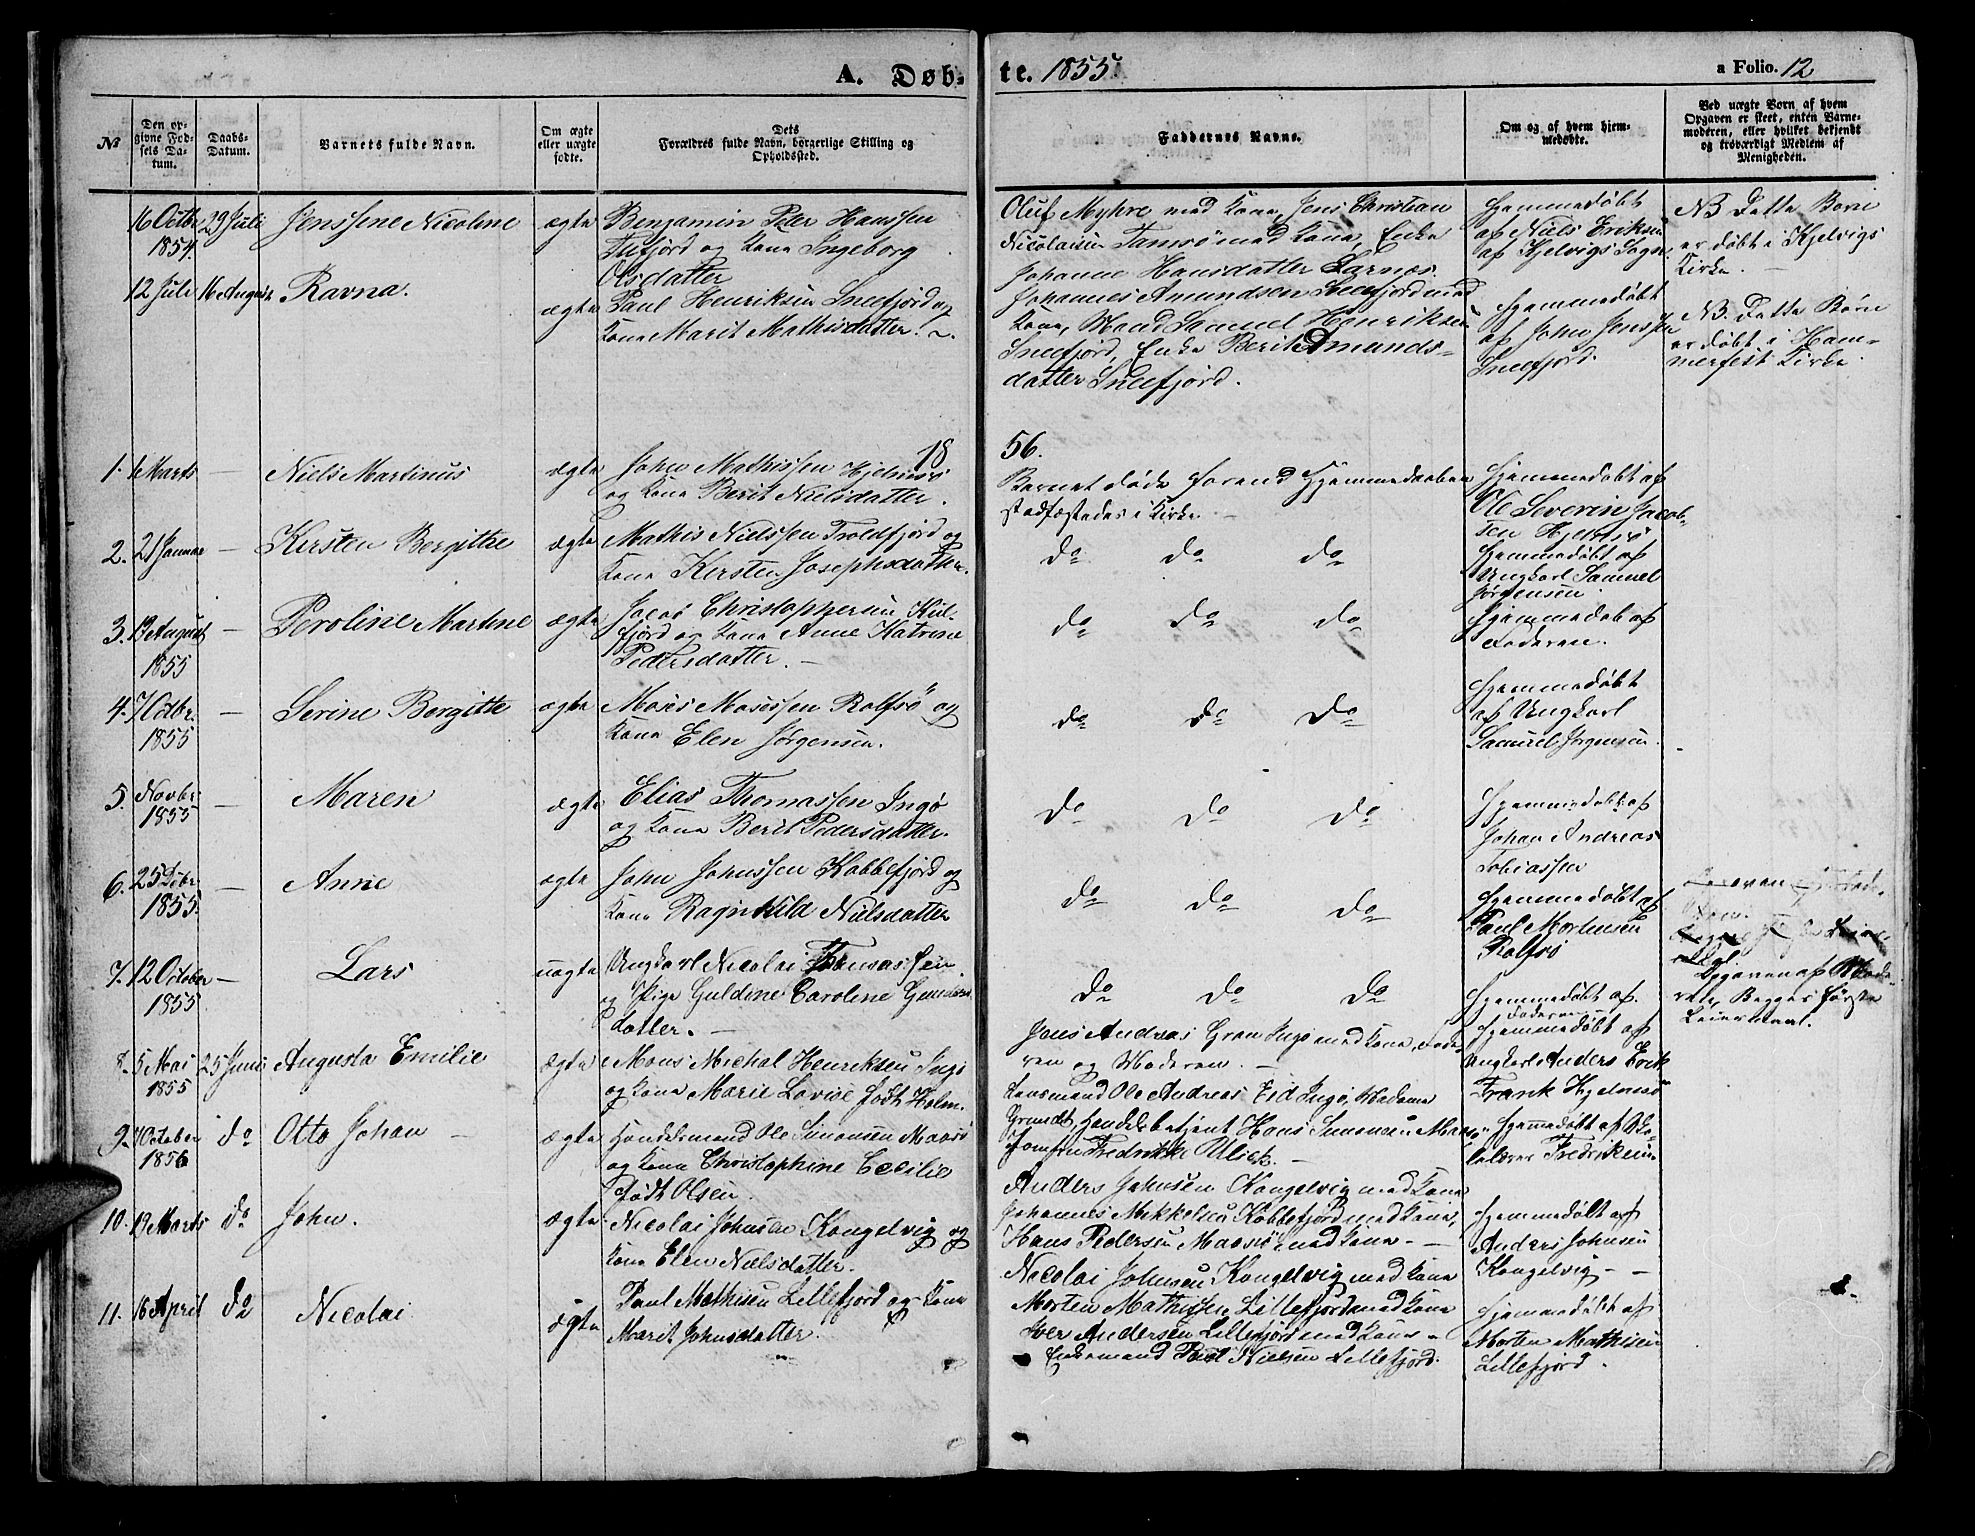 A. Døb- te. 1855. a Folio. 12
№
Den op-
givne Fød-
sels Da-
tum.
Daabs-
Datum.
Barnets fulde Navn.
Om ægte
eller uægte
fødte.
Dets
Forældres fulde Navn, borgerlige Stilling og
Opholdssted.
Faddernes Navne.
Om og af hvem hjem-
medøbte.
Ved uægte Børn af hvem
Opgaven er skeet, enten Barne-
moderen, eller hvilket bekjendt
og troværdigt Medlem af
Menigheden.
16 Octbr
1854.
29 Juli
Jenssine Nicoline
ægte
Benjamin Peter Hanssen
Tufjord og Kone Ingeborg
Olsdatter
Oluf Myhre med Kone, Jens Christian
Nicolaisen Tamsø med Kone, Enke
Johanne Hansdatter Sarnæs.
Hjemmedøbt
af Niels Eriksen
af Kjelvigs Sogn.
NB Dette Barn
er døbt i Kjelvigs
Kirke.
12 Juli
16 August
Ravna.
ægte
Paul Henriksen Sneefjord og
Kone Marit Mathisdatter.
Johannes Amundsen Sneefjord med
Kone, Mand Samuel Henriksen
Sneefjord, Enke Berit Amunds-
datter Sneefjord.
Hjemmedøbt
af John Jenssen
Sneefjord.
NB. Dette Barn
er døbt i Ham-
merfest Kirke.
18 56.
1. 1 Marts
—
Niels Martinus
ægte
John Mathissen Hjelmsø
og Kone Berit Nielsdatter.
Barnet døde forend Hjemmedaaben
stadfæstedes i Kirke.
Hjemmedøbt af
Ole Severin Jacob-
sen Hjelmsø
2. 21 Januar
—
Kirsten Bergitte
ægte
Mathis Nielssen Troldfjord og
Kone Kirsten Josephsdatter.
do do do
Hjemmedøbt af
Ungkarl Samuel
Jørgensen.
3. 13 August
1855
—
Peroline Martine
ægte
Jacob Christoppersen Kul-
fjord og Kone Anne Katrine
Pedersdatter. —
do do do
Hjemmedøb af
Faderen.
4. 7 Octbr.
1855
—
Serine Bergitte
ægte
Moses Mosessen Rolfsø og
Kone Elen Jørgensen.
do do do
Hjemmedøbt
af Ungkarl
Samuel Jørgensen.
5. Novbr
1855
—
Maren
ægte
Elias Thomassen Ingø
og Kone Berit Pedersdatter.
do do do
Hjemmedøbt af
Johan Andreas
Tobiassen
6. 25 Dcbr
1855.
—
Anne
ægte
John Johnssen Kobbefjord og
Kone Ragnhild Nielsdatter
do do do
Hjemmedøbt af
Paul Mortensen
Rolfsø
7. 12 October
1855
—
Lars
uægte
Ungkarl Nicolai Thomassen
og Pige Guldine Caroline
datter. —
do do do
Hjemmedøbt af
Faderen
Opgaven af Mode-
ren, Begges første
Leiermaal.
8. 5 Mai
1855
25 Juni
Augusta Emilie
ægte
Mons Michal Henriksen Ingø
og Kone Marie Lovise født Holm.
Jens Andreas Gran Ingø med Kone, Fade-
ren og Moderen. —
Hjemmedøbt af
Ungkarl Anders Erik
Frank Hjelmsø
9. 7 October
1856
do
Otto Johan —
ægte
Handelsmand Ole Simonsen Maasø
og Kone Christophine Cecilie
født Olsen.
Lensmand Ole Andreas Eid Ingø, Madame
Handelsbetjent Hans Simonsen Maasø
Jomfru Fredrikke Ulich. —
Hjemmedøbt af Sko-
lelærer Fredriksen
10. 19 Marts
do
John.
ægte
Nicolai Johnsen Kongelvig og
Kone Elen Nielsdatter.
Anders Johnsen Kongelvig med Kone
Johannes Mikkelsen Kobbefjord med Kone,
Hans Pedersen Maasø med Kone. —
Hjemmedøbt af
Anders Johnsen
Kongelvig —
11. 16 April
do
Nicolai
ægte
Paul Mathisen Lillefjord og Kone
Marit Johnsdatter.
Nicolai Johnsen Kongelvig med Kone
Morten Mathissen Lillefjord med Kone
Iver Andersen Lillefjord med Kone
Enkemand Poul Nielsen Lillefjord.
Hjemmedøbt af
Morten Mathisen
Lillefjord.